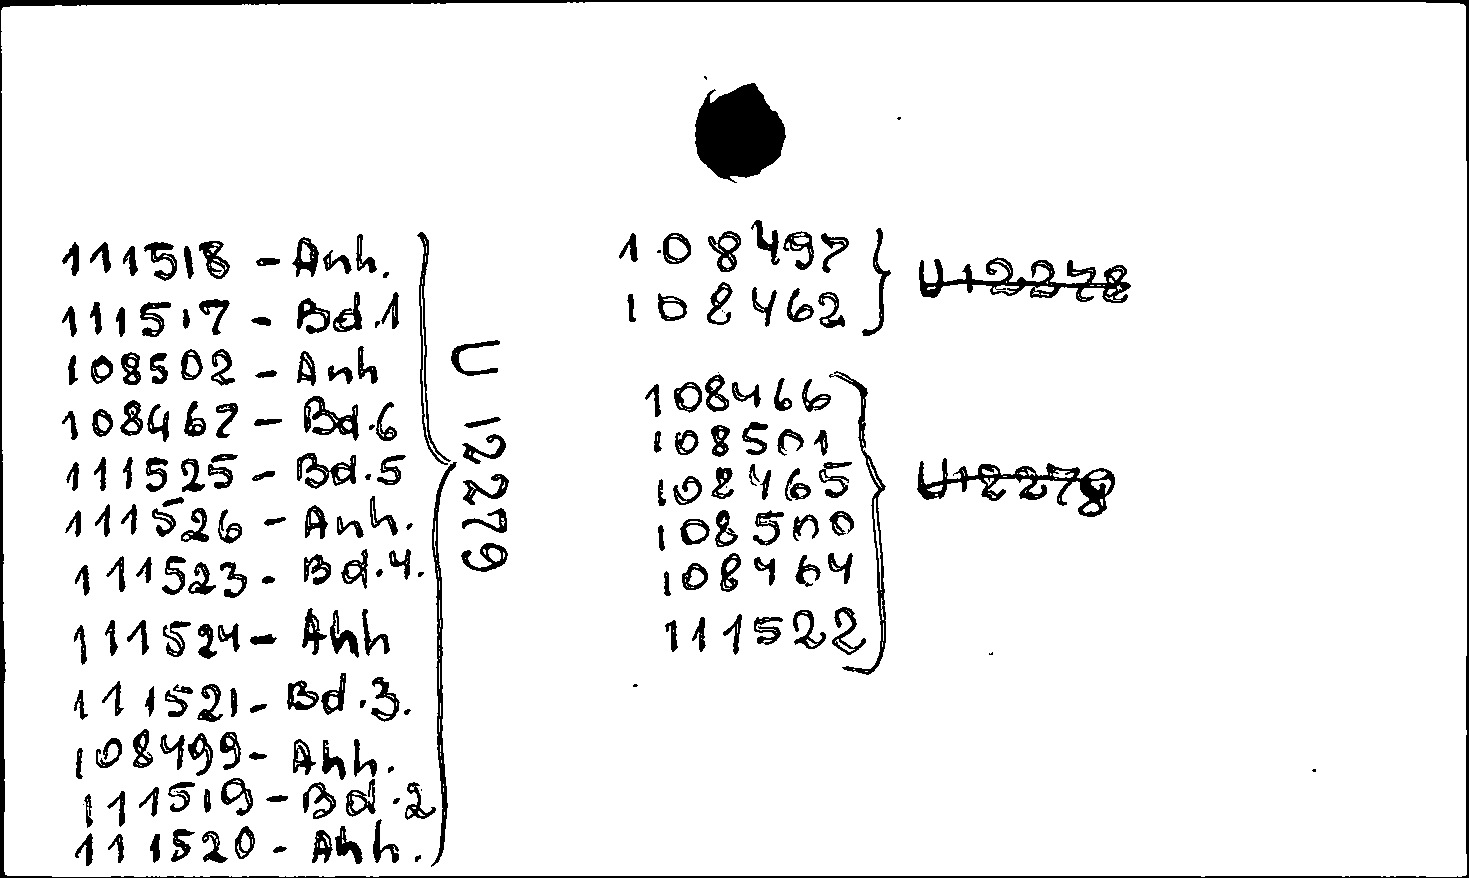 111518 - Anh.
111517 - Bd.1
108502 - Anh
108467 - Bd.6
111525 - Bd.5
111526 - Anh.
111523 - Bd.4.
111524 - Anh
111521 - Bd.3.
108499 - Anh.
111519 - Bd.2
111520 - Anh.
U 12279
108497
108462
U 12278
108466
108501
108465
108500
108464
111522
U 12279